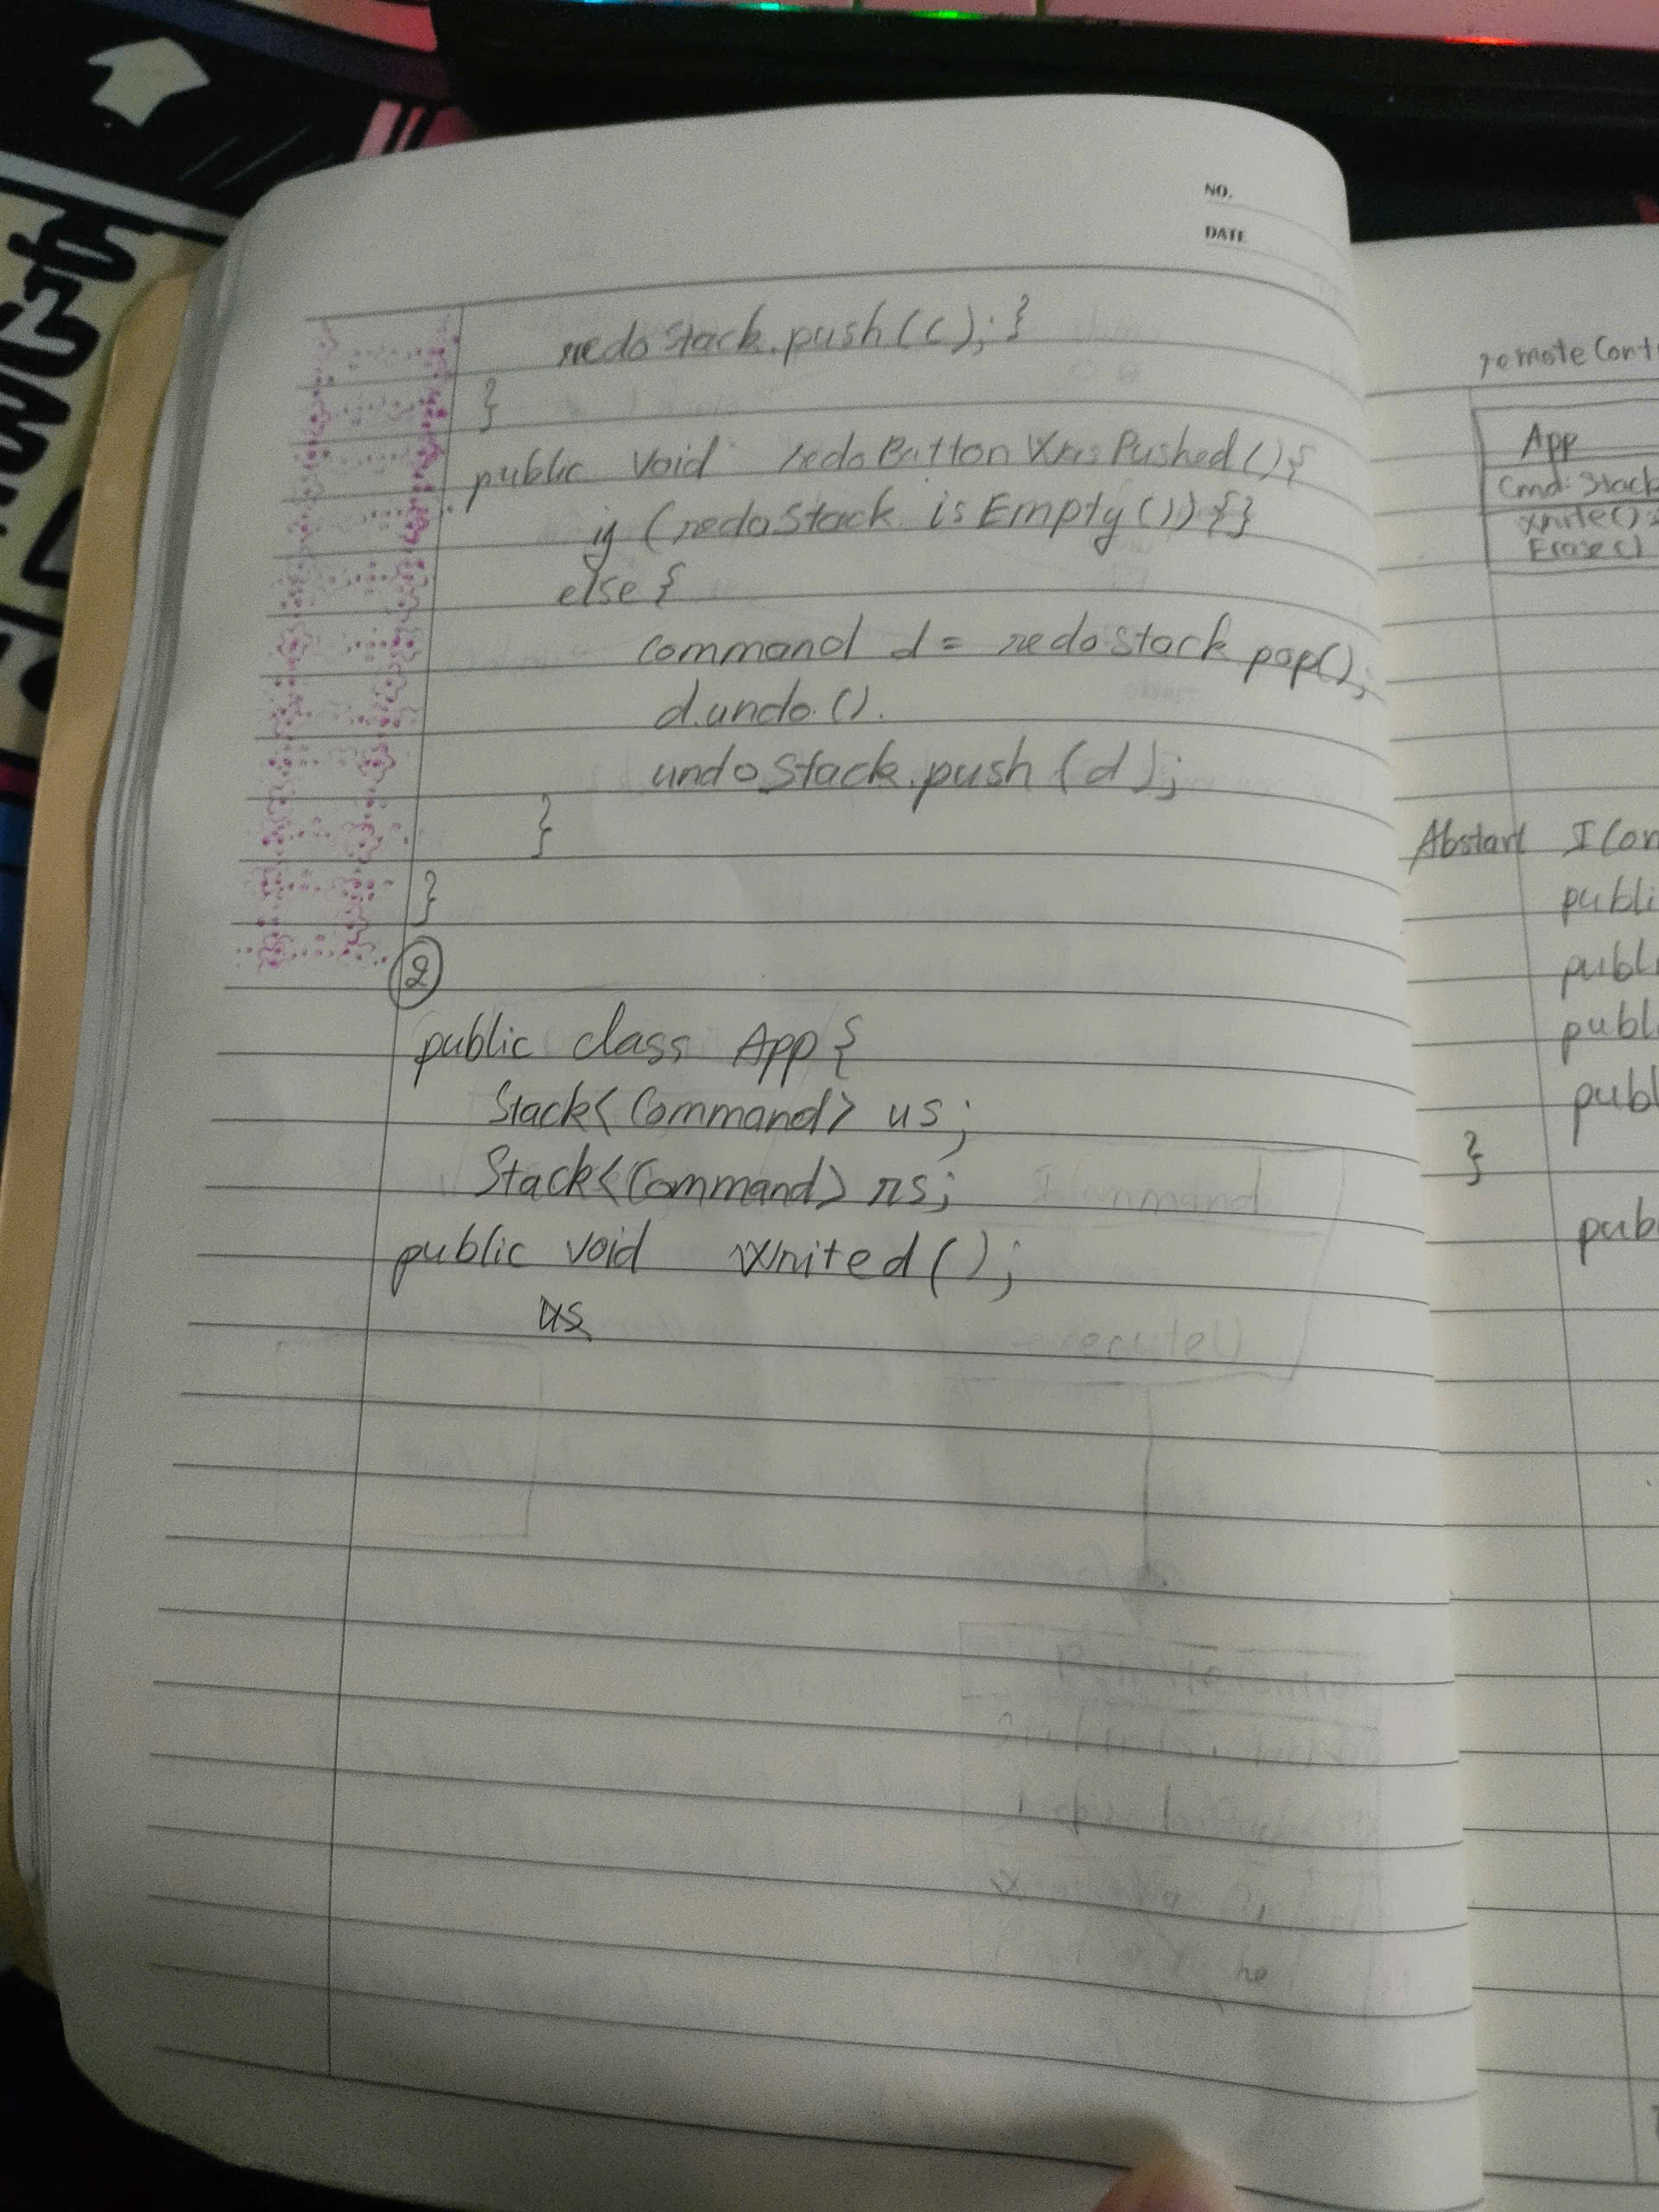 NO.
DATE
redoStack.push(c); }
}
public void redoButtonWasPushed(){
if (redoStack isEmpty()) {}
else {
command d = redoStack pop();
d.undo().
undoStack.push(d);
}
}
2
public class App {
Stack<Command> us;
Stack<Command> rs;
public void writed();
us
remoteCont
App
Cmd: Stack
write():
Erase()
Abstart ICon
publi
publi
publ
publ
}
pub